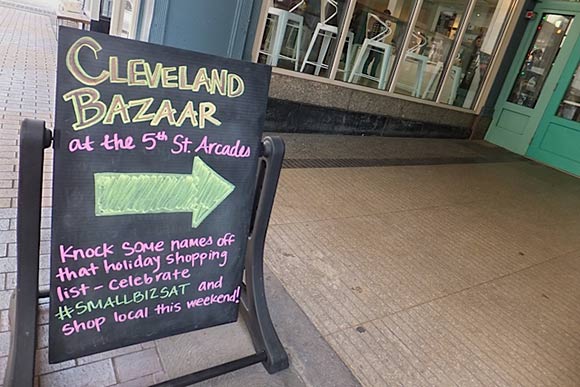 CLEVELAND
BAZAAR
at the 5th St. Arcades
Knock some names off
that holiday shopping
list - celebrate
#SMALLBIZSAT and
shop local this weekend!